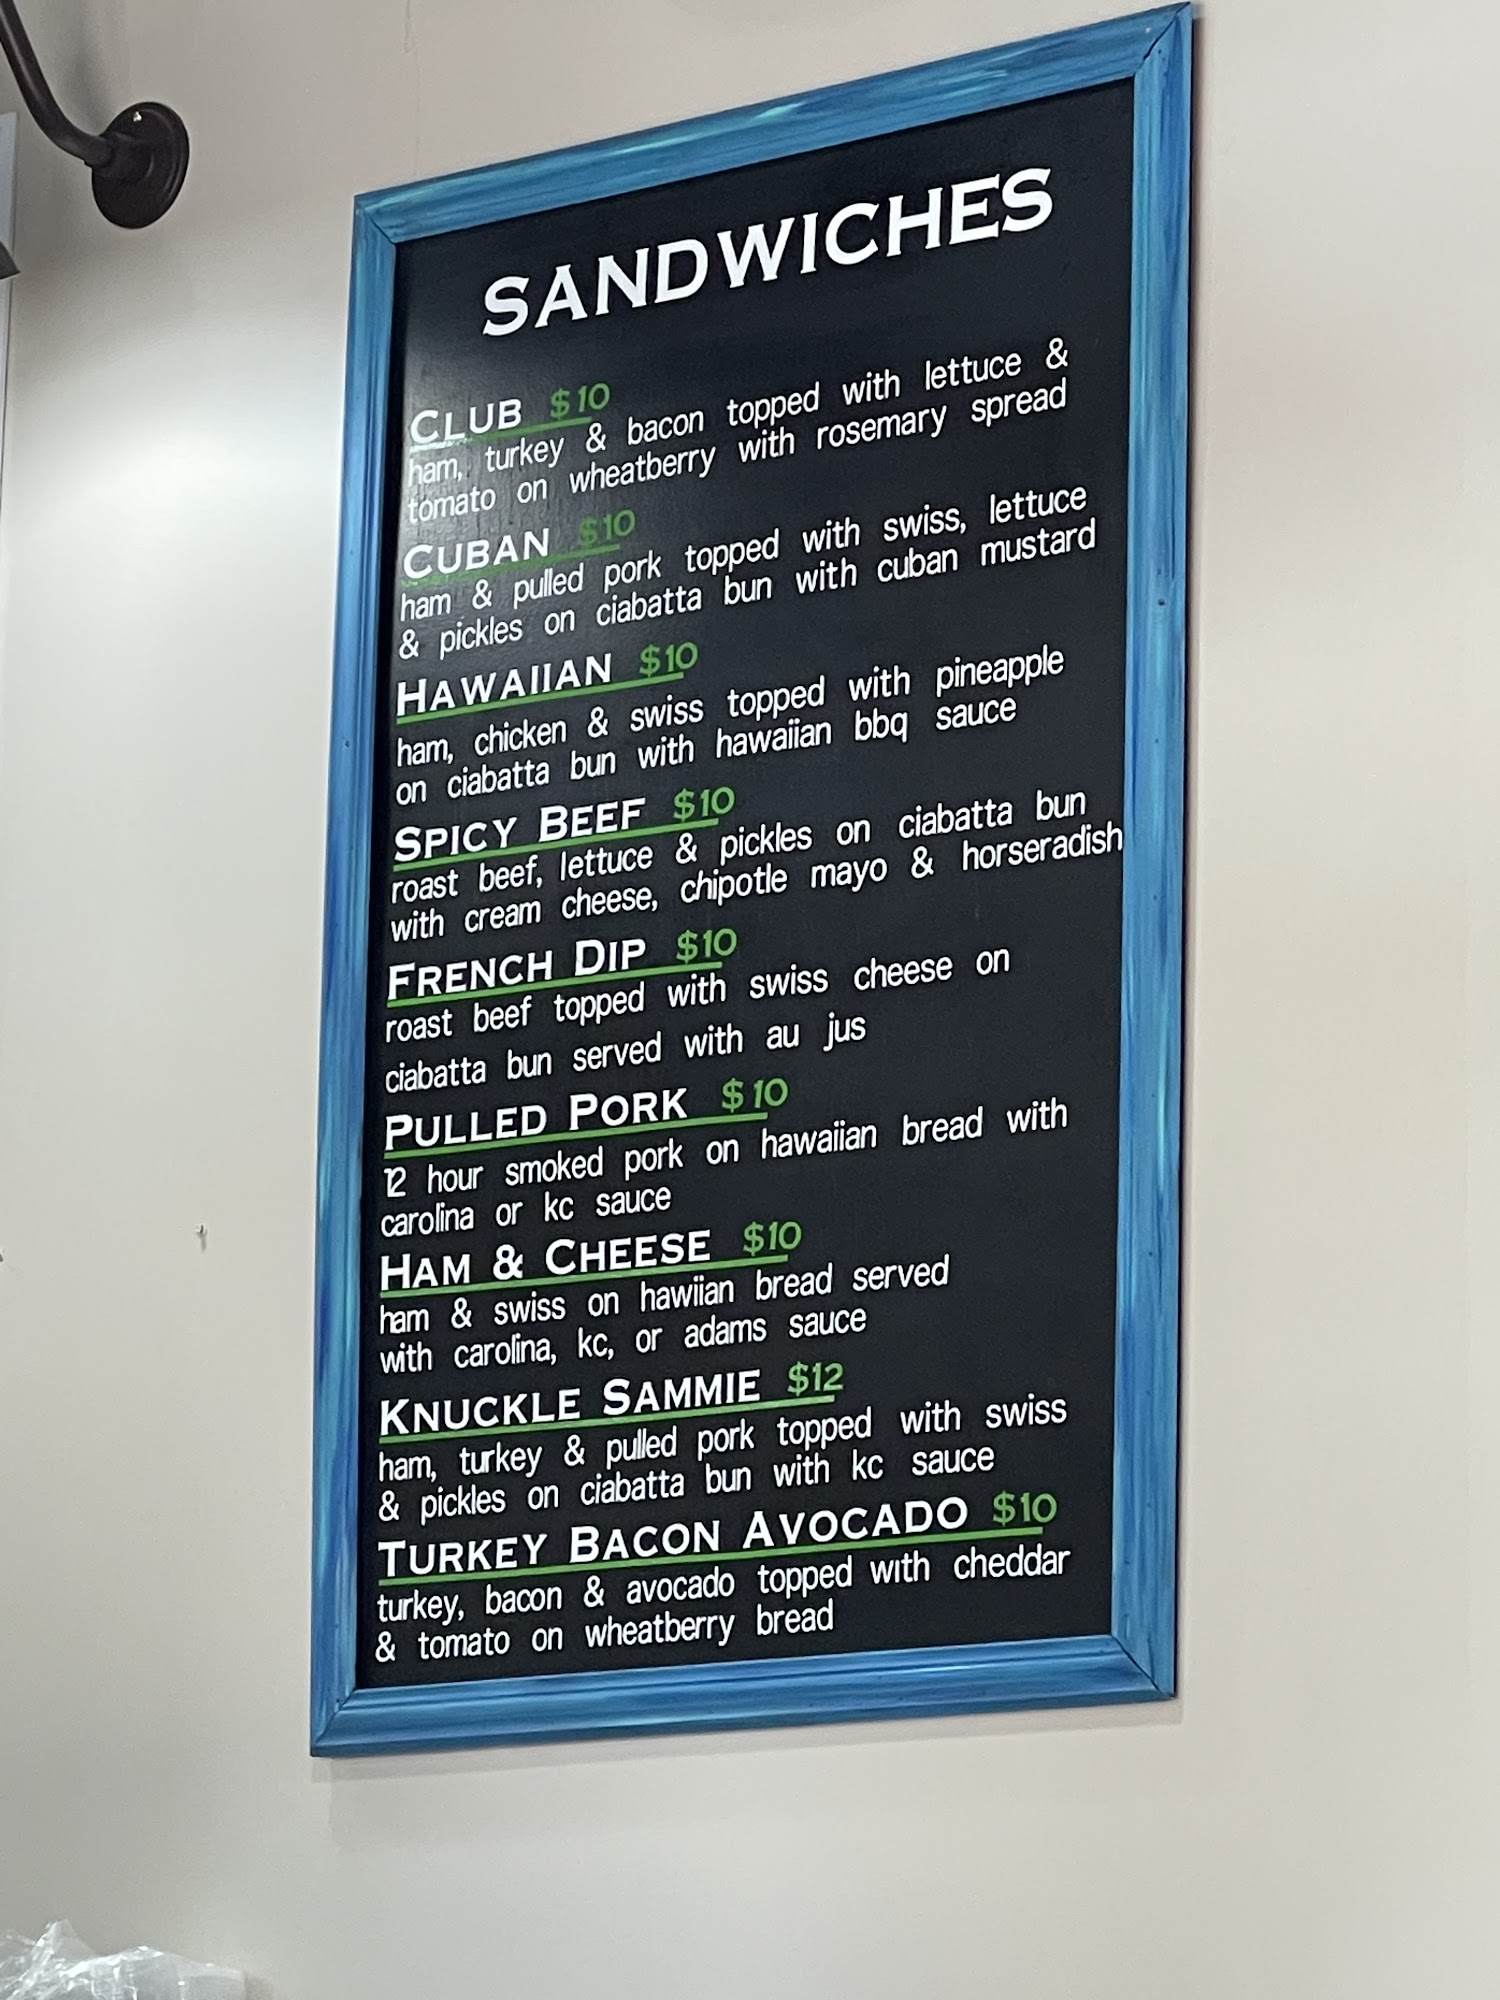 SANDWICHES
CLUB $10
ham, turkey & bacon topped with lettuce &
tomato on wheatberry with rosemary spread
CUBAN $10
ham & pulled pork topped with swiss, lettuce
& pickles on ciabatta bun with cuban mustard
HAWAIIAN $10
ham, chicken & swiss topped with pineapple
on ciabatta bun with hawaiian bbq sauce
SPICY BEEF $10
roast beef, lettuce & pickles on ciabatta bun
with cream cheese, chipotle mayo & horseradish
FRENCH DIP $10
roast beef topped with swiss cheese on
ciabatta bun served with au jus
PULLED PORK $10
12 hour smoked pork on hawaiian bread with
carolina or kc sauce
HAM & CHEESE $10
ham & swiss on hawiian bread served
with carolina, kc, or adams sauce
KNUCKLE SAMMIE $12
ham, turkey & pulled pork topped with swiss
& pickles on ciabatta bun with kc sauce
TURKEY BACON AVOCADO $10
turkey, bacon & avocado topped with cheddar
& tomato on wheatberry bread